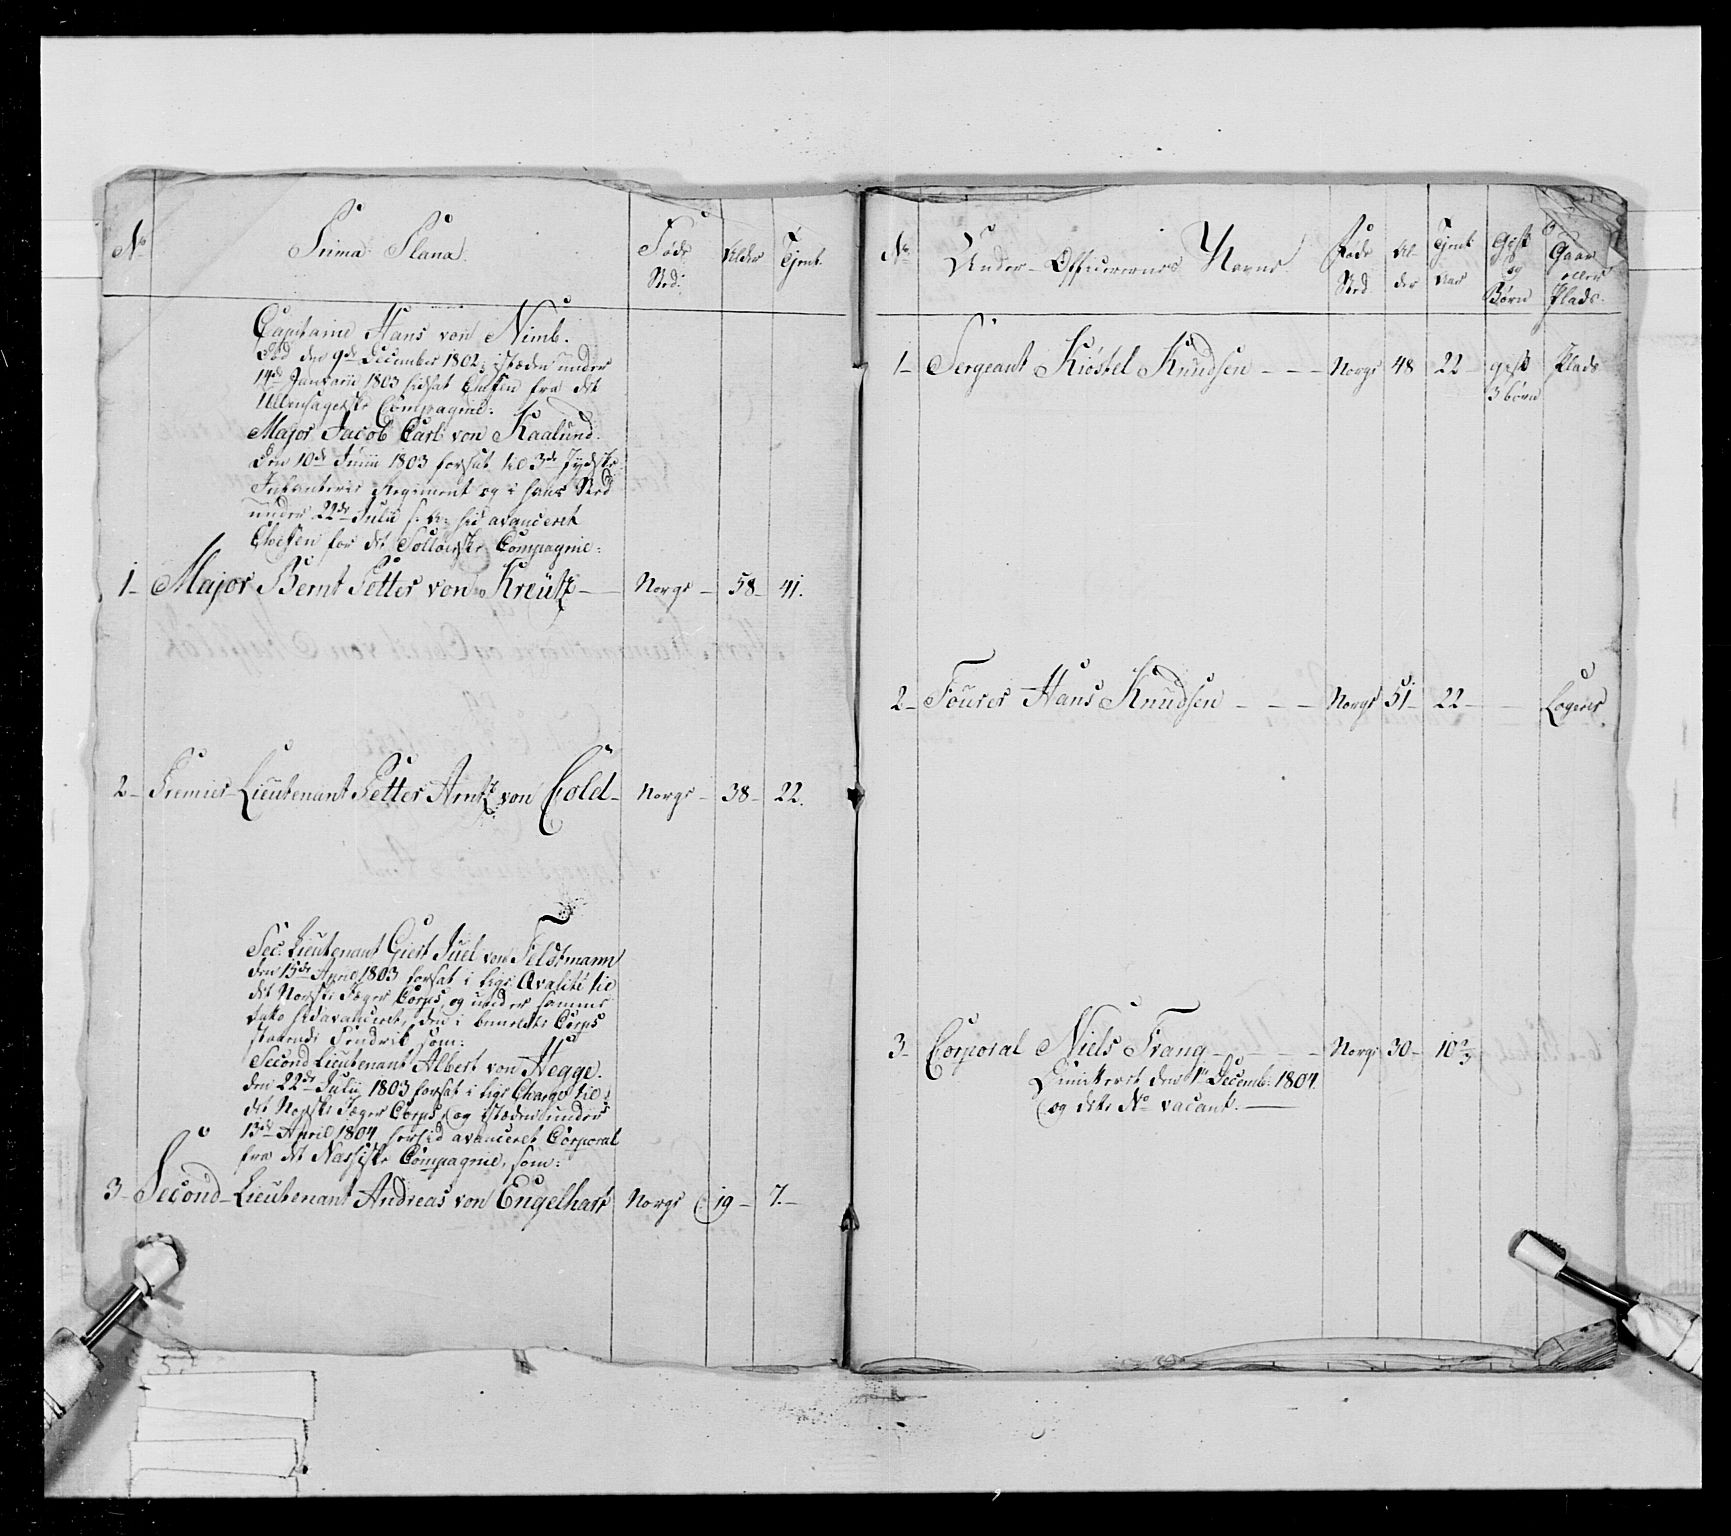 No
Prima Plana.
Føde
Sted.
Alder
Tjent.
Capitaine Hans von Nimb.
Død den 9de December 1802, istæden under
14de Januarii 1803 hidsat Chefen fra det
Ullensagerske Compagnie:
Major Jacob Carl von Kaalund.
Den 10de Junii 1803 forsat til 3de Jydske
Infanterie Regiment og i hans Sted
under 22de Julii s. A. hid avanceret
Chefen for det Soløerske Compagnie:
1- Major Bernt Petter von Kreütz - Norge - 58 - 41.
2- Premier-Lieutenant Petter Arntz von Cold - Norge - 38 - 22.
Sec: Lieutenant Giert Juel von Feldtmann
den 15de April 1803 forsat i lige Qvalité til
det Norske Jæger Corps, og under samme
dato hidavanceret, den i bemeldte Corps
staaende Fendrik som:
Second Lieutenant Albert von Hegge.
den 22de Julii 1803 forsat i lige Charge til
det Norske Jæger Corps, og istæden under
13de April 1804 herhid avanceret Corporal
fra det Næssiske Compagnie, som:
3- Second-Lieutenant Andreas von Engelhart Norge 19 - 7.-
No
Under-Officerernes Navne.
Føde
Sted
Al-
der
Tjent
Aar
Gift
og
Børn
Gaar
eller
Plads.
1- Sergeant Kiöstel Knudsen - - - Norge 48 22 gift Plads
3 børn
2- Fourer Hans Knudsen - - - Norge 51 - 22 - - Logerer.
3- Corporal Niels Trang - - - Norge 30 - 10 2/3
Dimitteret den 1te Decemb: 1804
og dette No vacant. -